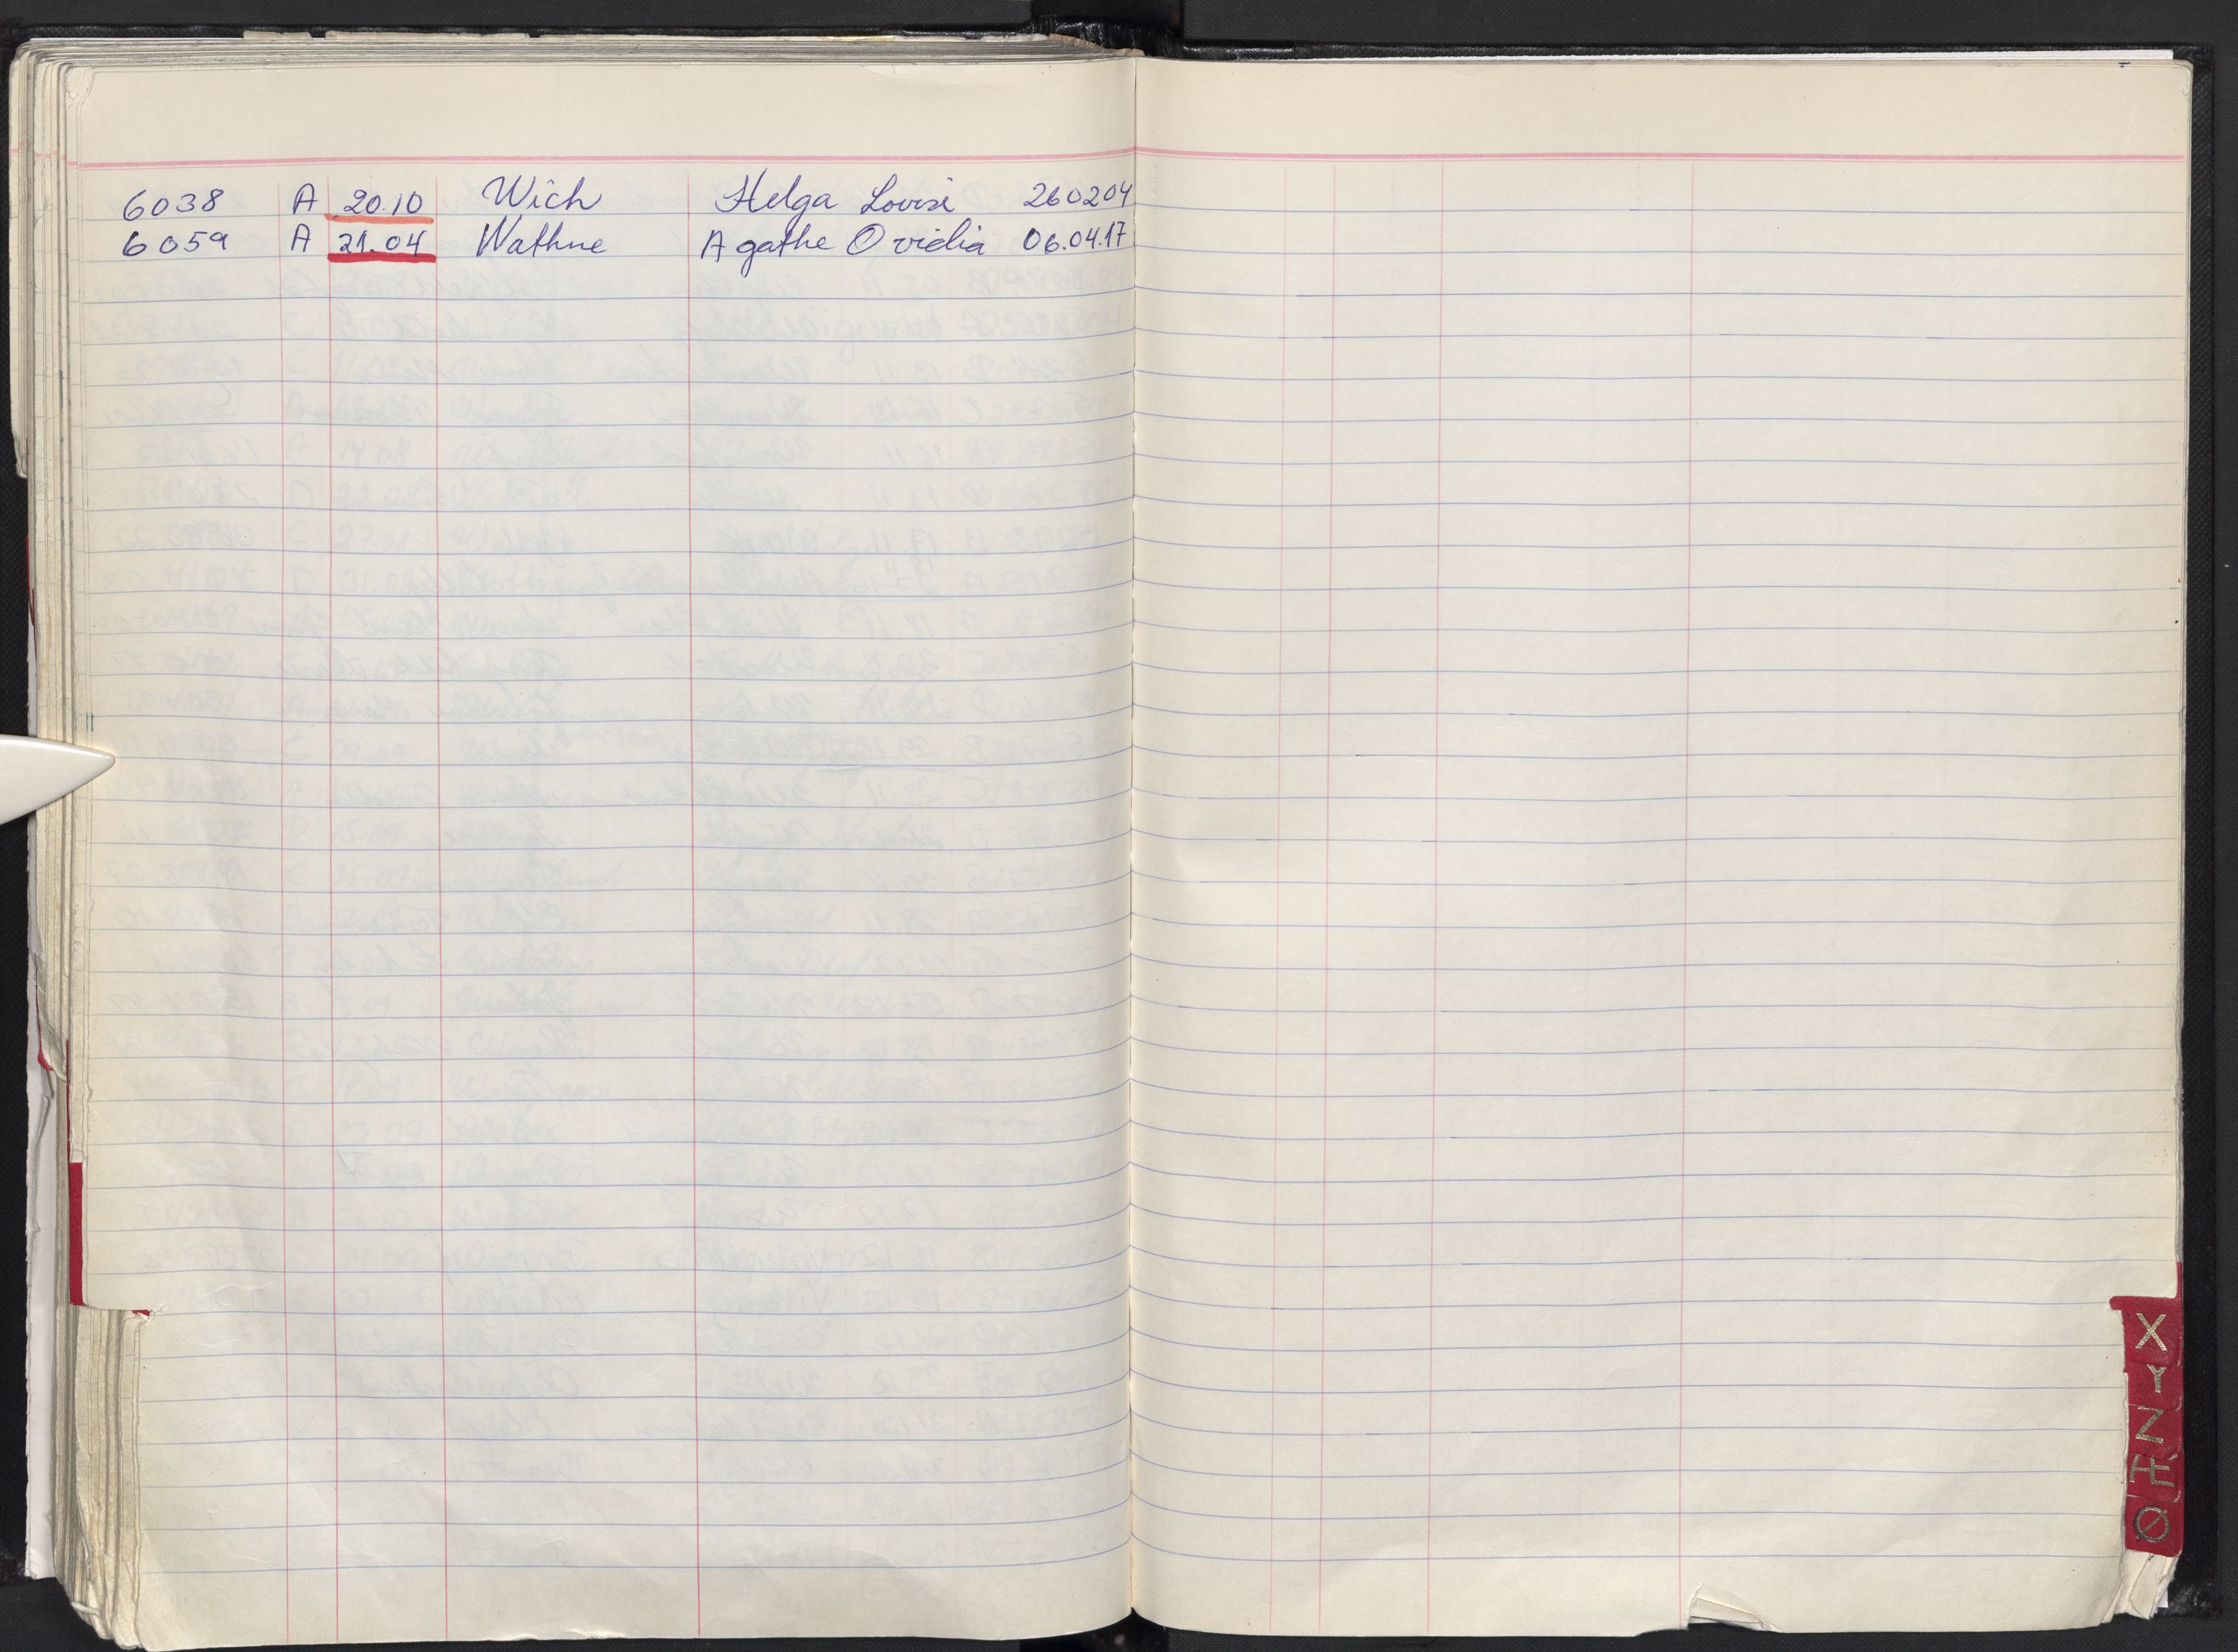 6038 A 20.10 Wich Helga Lovise 260204
6059 A 21.04 Wathne Agathe Ovidia 06.04.17
X
Y
Z
Æ
Ø